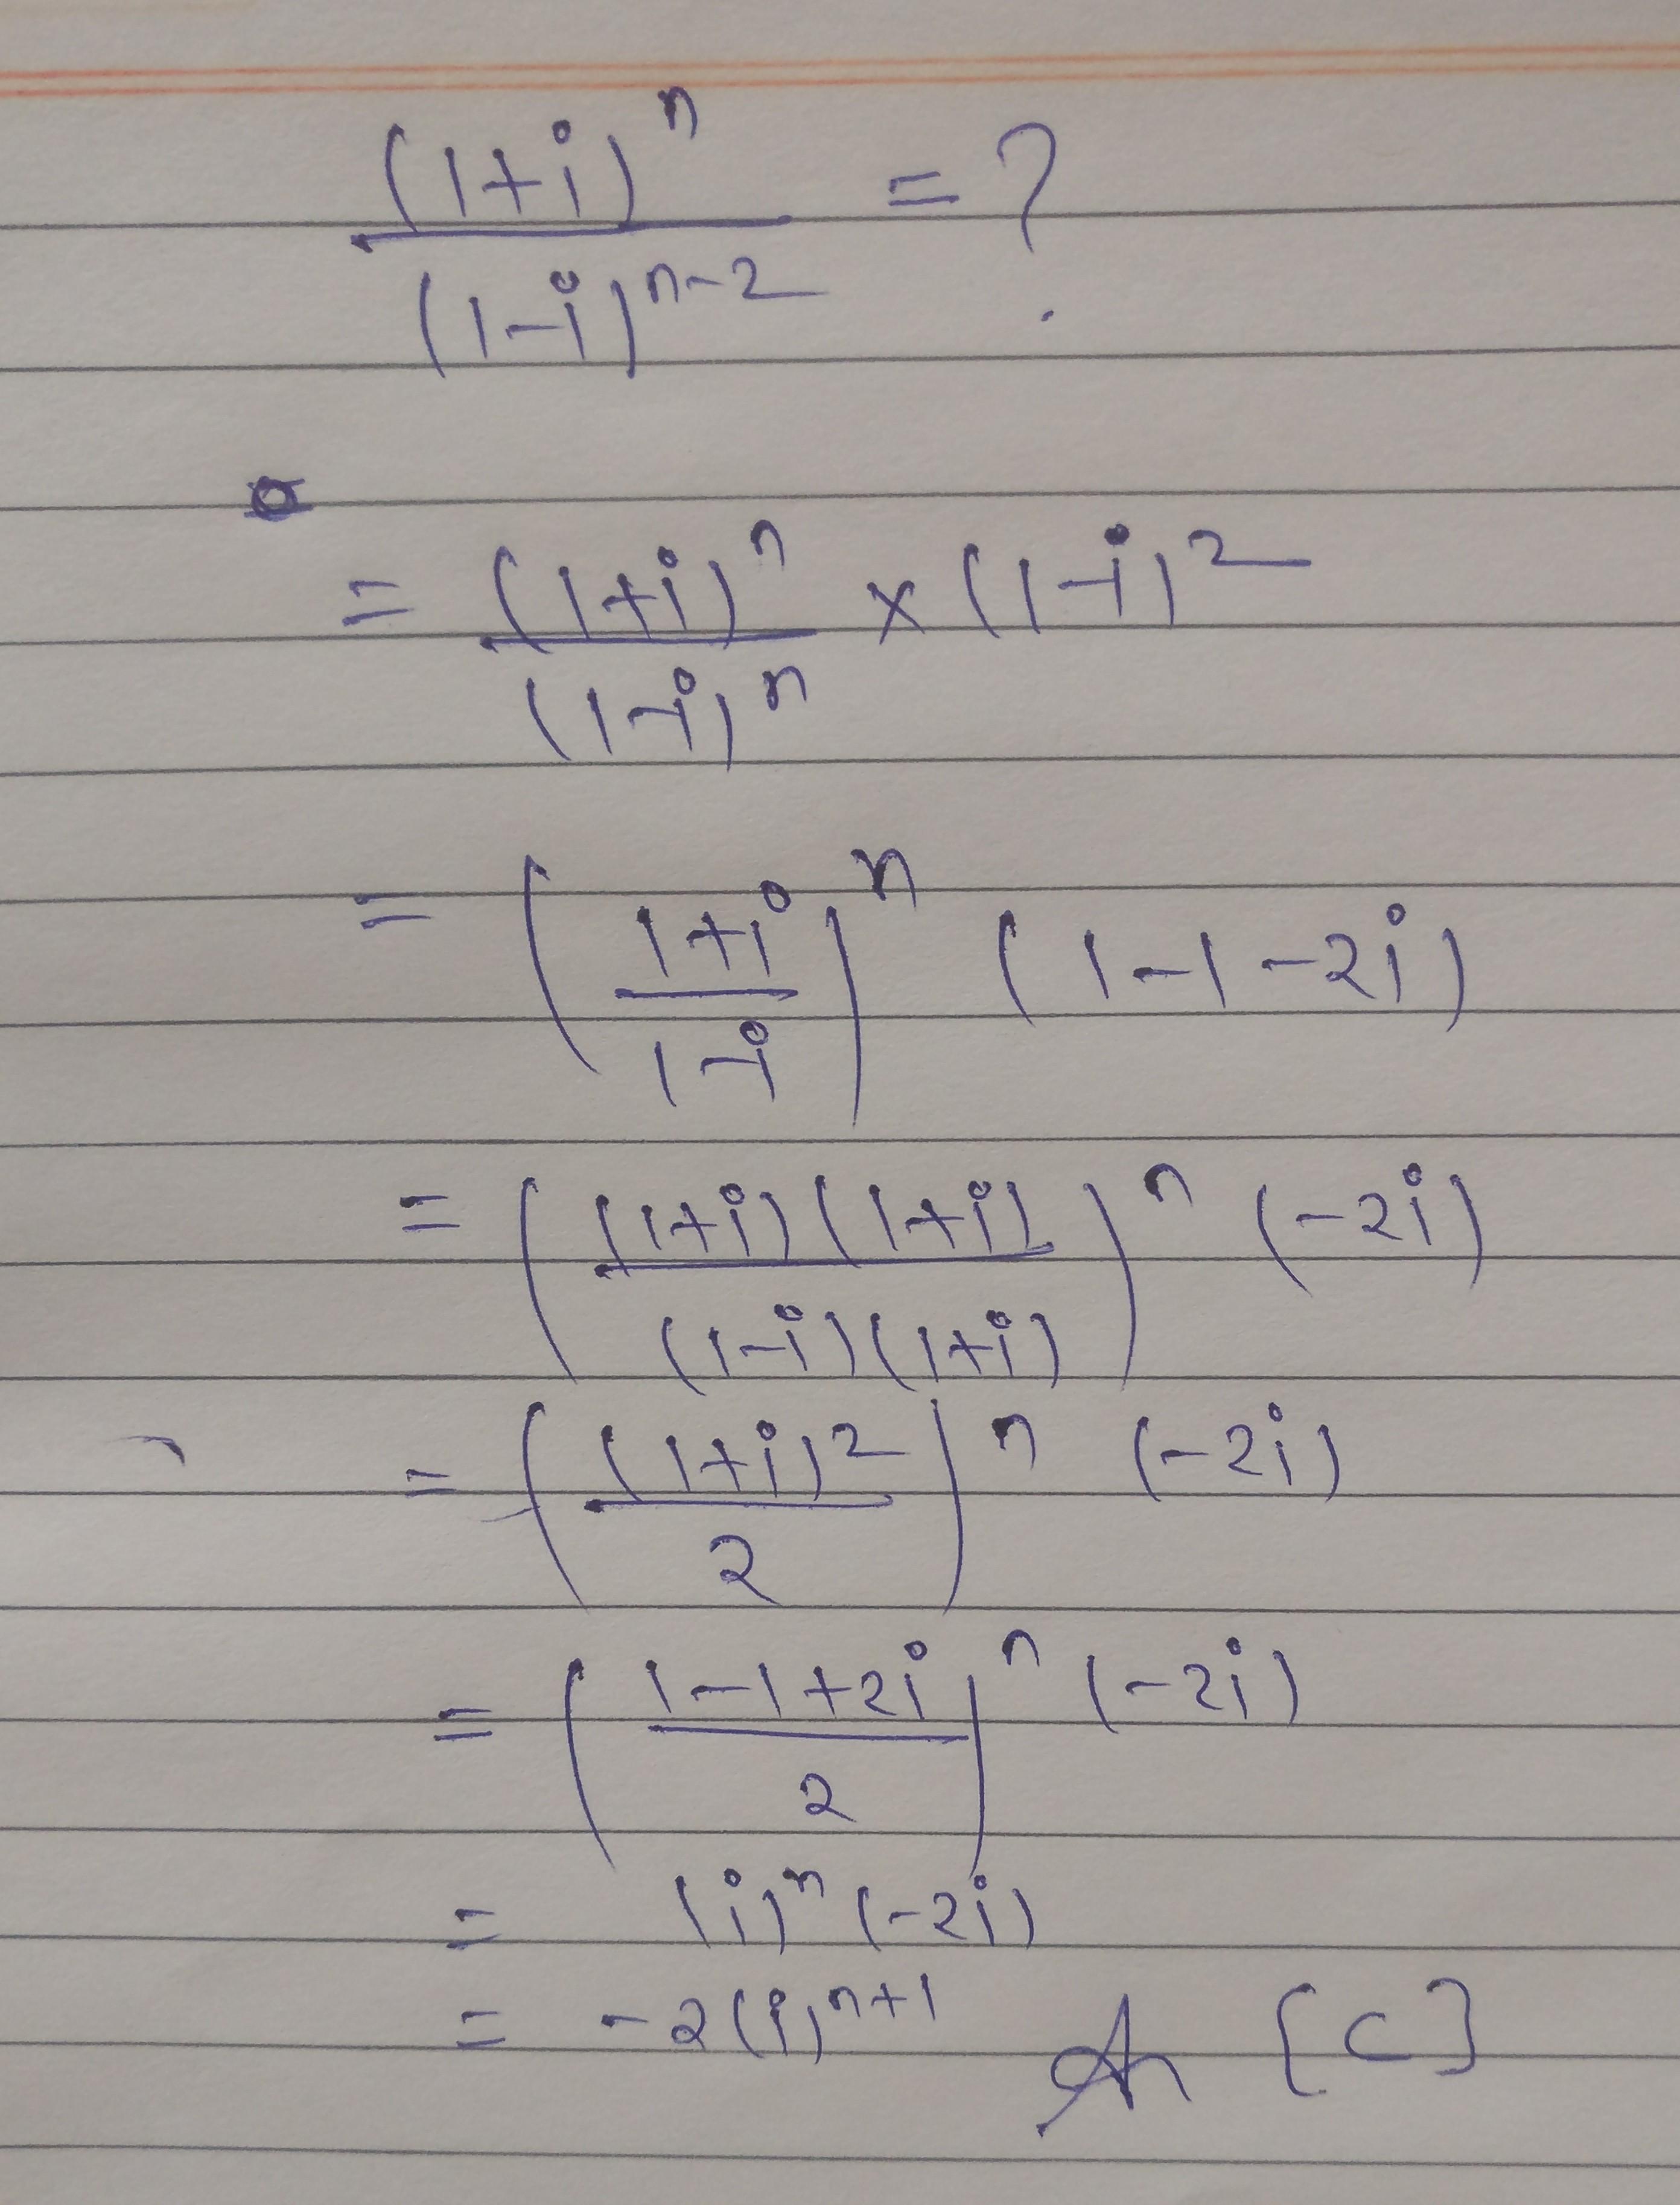 (1+i)^n / (1-i)^{n-2} = ?
= (1+i)^n / (1-i)^n × (1-i)^2
= ((1+i) / (1-i))^n (1-1-2i)
= ((1+i)(1+i) / (1-i)(1+i))^n (-2i)
= ((1+i)^2 / 2)^n (-2i)
= ((1-1+2i) / 2)^n (-2i)
= (i)^n (-2i)
= -2(i)^{n+1} An [C]